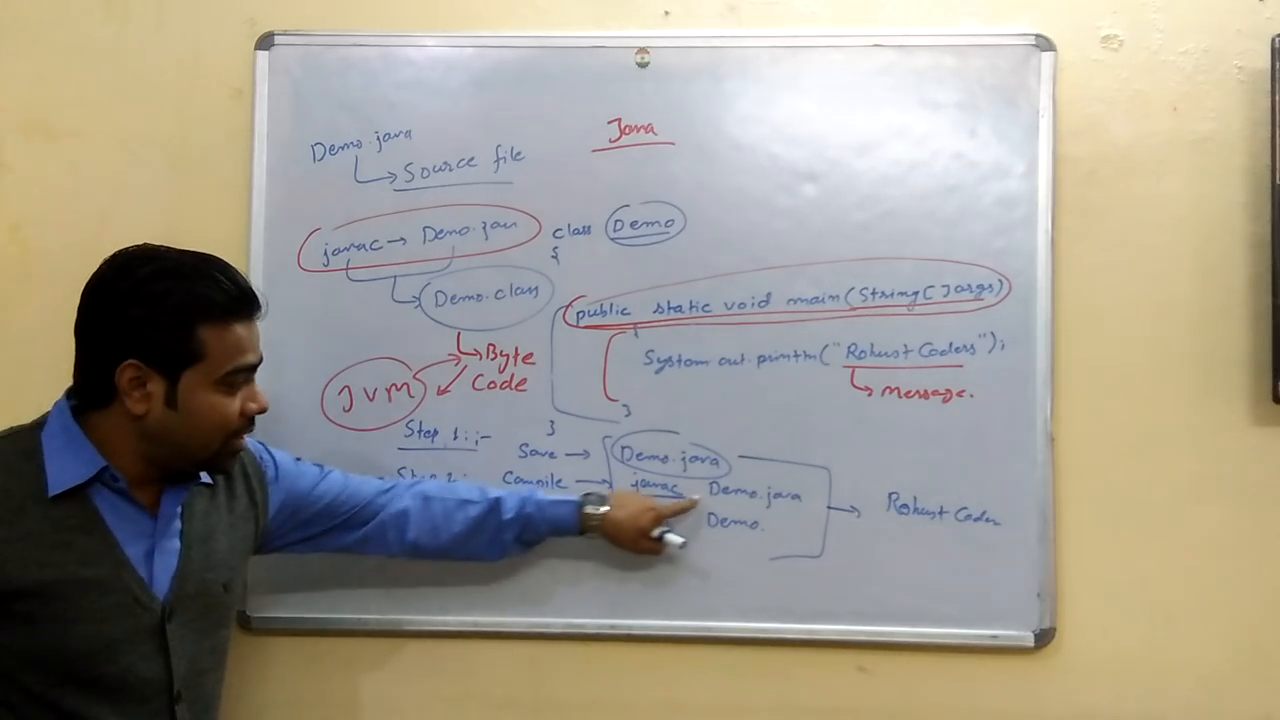 Java
Demo.java
Source file
javac → Demo.java
Demo.class
Byte
Code
JVM
class Demo
{
public static void main(String[]args)
{
System.out.println("Robust Coders");
Message.
}
}
Step 1:-
Save → Demo.java
Step 2:
Compile → javac Demo.java
Demo.
Robust Coder